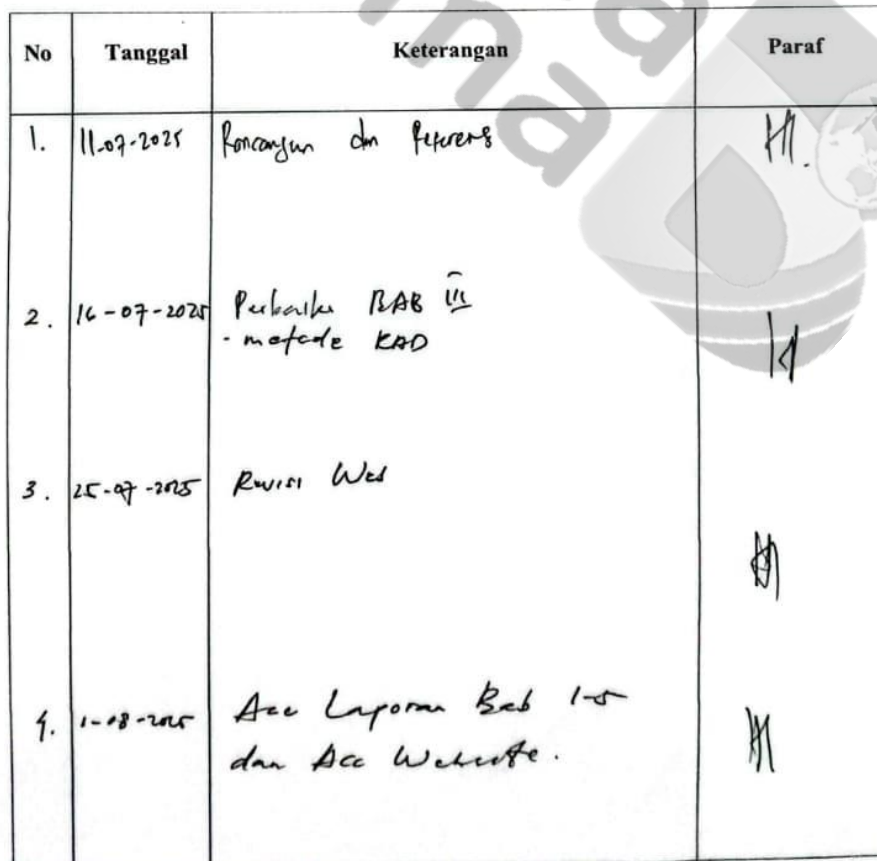 No Tanggal Keterangan Paraf
1. 11-07-2025 Rancangan dan Referensi
2. 16-07-2025 Perbaiki BAB III
- metode RAD
3. 25-07-2025 Revisi Web
4. 1-08-2025 Acc Laporan Bab 1-5
dan Acc Website.